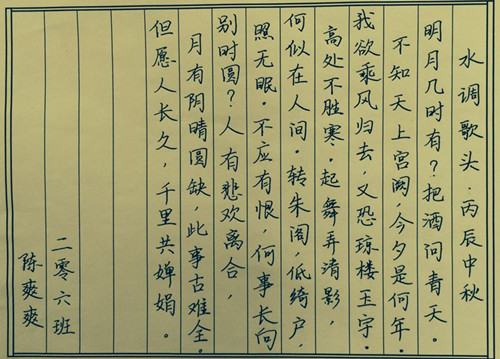 水调歌头·丙辰中秋
明月几时有？把酒问青天。
不知天上宫阙，今夕是何年。
我欲乘风归去，又恐琼楼玉宇。
高处不胜寒。起舞弄清影，
何似在人间。转朱阁，低绮户，
照无眠。不应有恨，何事长向
别时圆？人有悲欢离合，
月有阴晴圆缺，此事古难全。
但愿人长久，千里共婵娟。
二零六班
陈爽爽